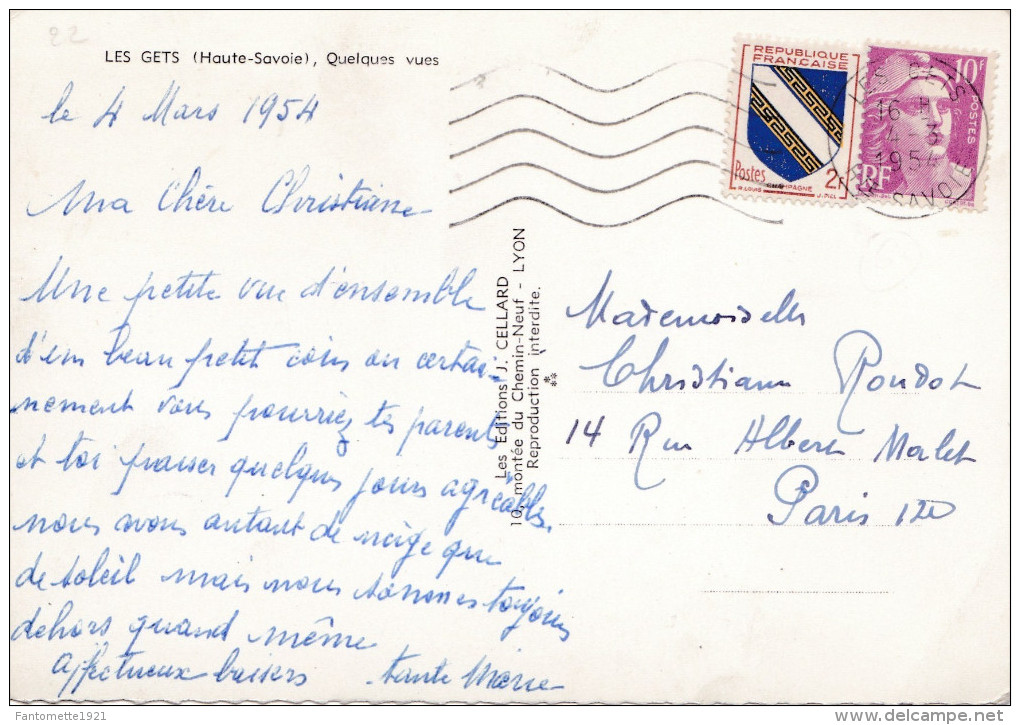 22
LES GETS (Haute-Savoie), Quelques vues
le 4 Mars 1954
Ma Chère Christiane
Une petite vue d'ensemble
d'un beau petit coin ou certai-
nement vous pourriez tes parents
et toi passer quelques jours agréables.
nous avons autant de neige que
de soleil mais nous sommes toujours
dehors quand même
affectueux baisers tante Marie
Les Editions J. CELLARD
10, montée du Chemin-Neuf - LYON
Reproduction interdite.
REPUBLIQUE
FRANÇAISE
Postes 2F
CHAMPAGNE
10F
POSTES
RF
LES GETS
16 H
4-3
1954
HTE SAVOIE
Mademoiselle
Christiane Roudot
14 Rue Albert Malet
Paris 12e
Fantomette1921
www.delcampe.net